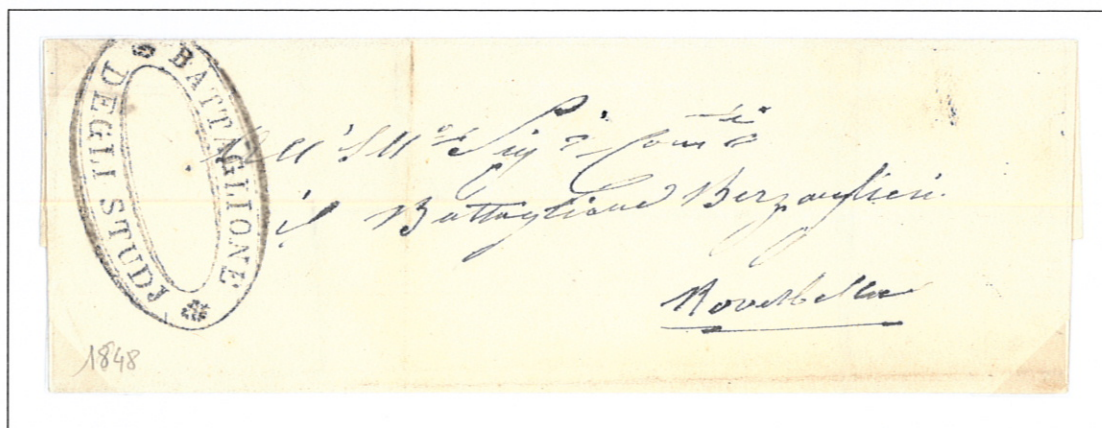 BATTAGLIONE
DEGLI STUDI
All' Ill.mo Sig.r Com.te
il Battaglione Berzaglieri
Roverbella
1848